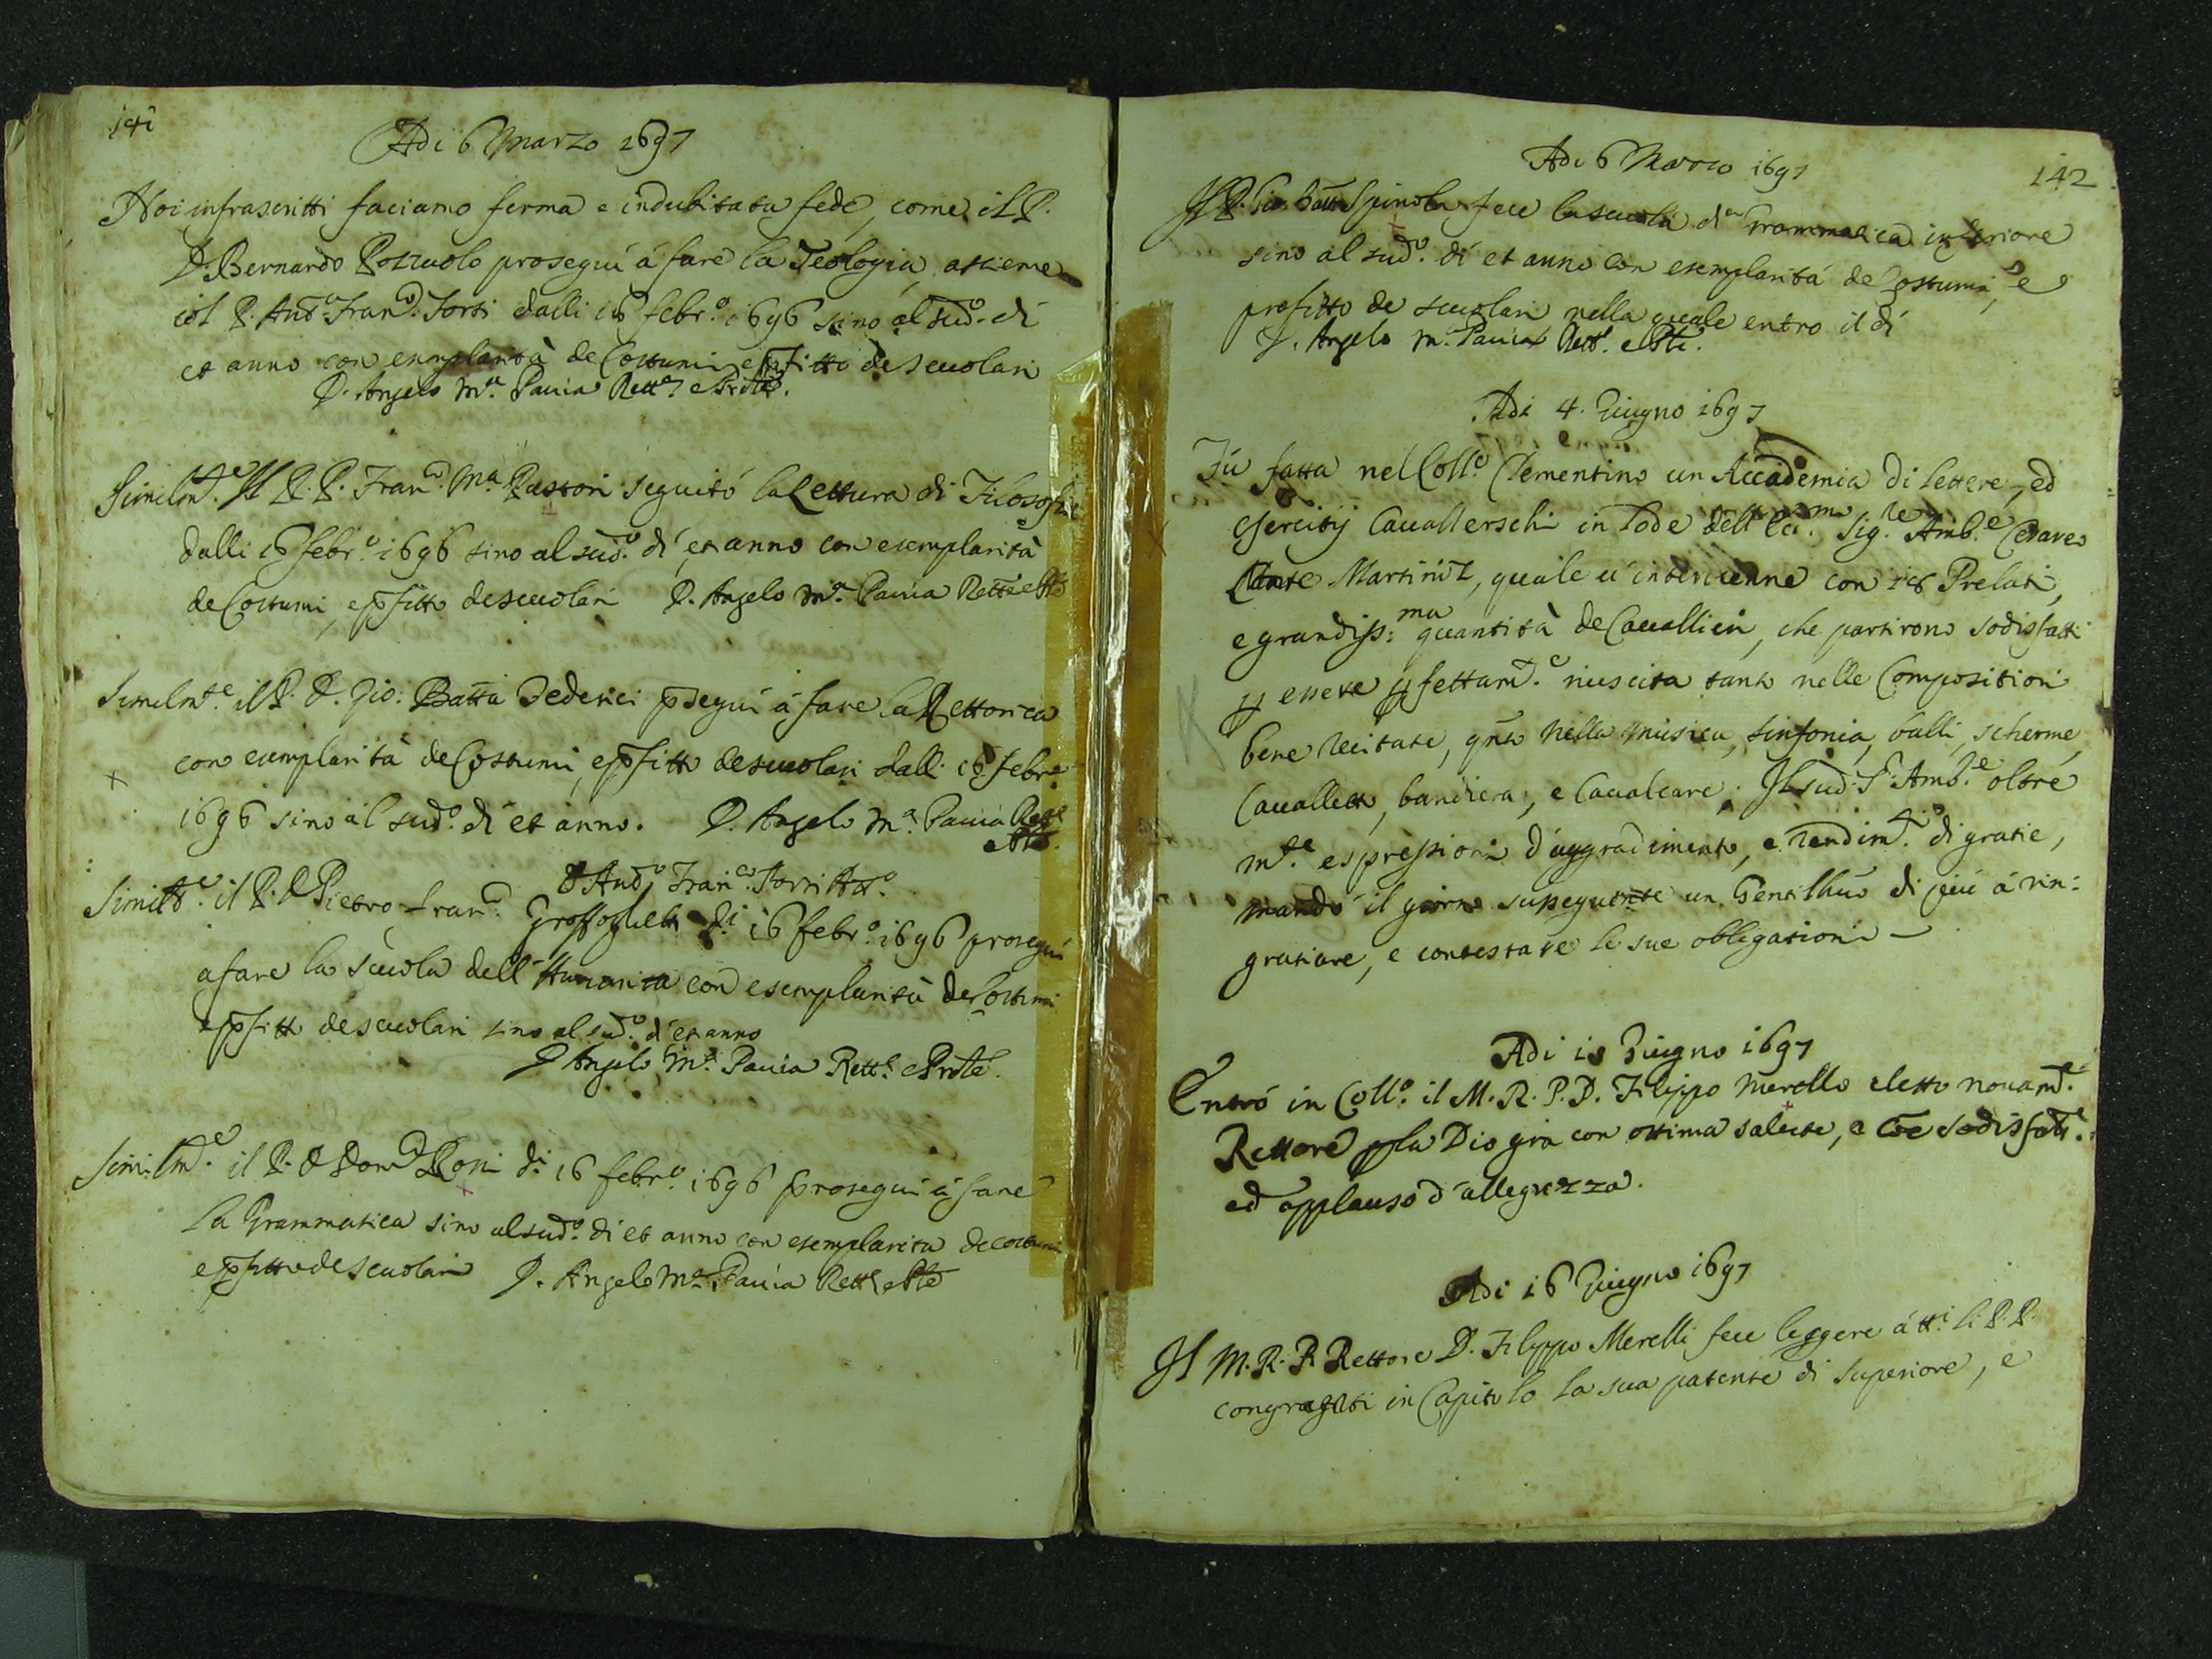 141
Adi 6 Marzo 1697
Noi infrascritti faciamo ferma e indubitata fede, come il P.
D. Bernardo Pozzuolo proseguì à fare la Teologia assieme
col P. Antº. Franco. Torti dalli 16 febrº. 1696 sino al sudº. dì
et anno con exmplarità de Costumi e pfitto de scuolari
D. Angelo Mª. Pavia Rettre. e Prte.
Similmte. Il P. P. Franco. Mª Pastori seguitò la Lettura di Filosofia
dalli 16 febrº 1696 sino al sudº. dì, et anno con esemplarità
de Costumi, e pfitto de scuolari D. Angelo Mª. Pavia Rettre e Pte
Similmte. il P. D. Gio: Batta Federici pseguì à fare la Rettorica
con exmplarità de Costumi, e pfitto de scuolari dalli 16 febrº
1696 sino al sudº. dì et anno. D. Angelo Mª. Pavia Rettre
e Pte.
D Antº Franco. Torti Attº
Similte. il P. D Pietro Franco. Groffoglietti di 16 febrº. 1696 proseguì
a fare la scuola dell'Humanita con esemplarità de Costumi
e pfitto de scuolari sino al sudº. dì et anno
D Angelo Mª. Pavia Rettre. e Prte.
Similmte. il P. D Domco Roni di 16 febrº. 1696 proseguì à fare
La Grammatica sino al sudº. dì et anno con esemplarita de costumi
e pfitto de scuolari D. Angelo Mª. Pavia Rettre e Pte
142
Adi 6 Marzo 1697
Il P. Gio. Batta Spinola fece la scuola di Grammatica inferiore
sino al sudº. dì et anno con esemplarità de Costumi, e
profitto de scuolari nella quale entro il dì
D. Angelo Mª. Pavia Rettre. e Pte.
Adi 4. Giugno 1697
Fù fatta nel Collº Clementino un Accademia di lettere, ed
esercitij Cavallerschi in lode dell'Ecc.mo Sig.re Amb.e Cesareo
Conte Martinitz, quale u'intervenne con 18 Prelati,
e grandiss:ma quantità de Cavallieri, che partirono sodisfatti
p essere pfettamte. riuscita tanto nelle Compositioni
bene recitate, qnto nella musica, sinfonia, balli, scherme,
Cavalletto, bandiera, e Cavalcare. Il sudº Sr. Amb.e oltre
mte. espressioni d'aggradimento, e rendimto. di gratie,
mandò il giorno susseguente un Gentilhuo di più à rin:
gratiare, e contestare le sue obligationi —
Adi 10 Giugno 1697
Entró in Collº. il M. R. P. D. Filippo Merello eletto novamte.
Rettore pla Dio grà con ottima salute, e coe sodisfatte.
ed applauso d'allegrezza.
Adi 16 Giugno 1697
Il M. R. P Rettore D. Filippo Merelli fece leggere à tti li P. P.
congregati in Capitolo la sua patente di Superiore, e